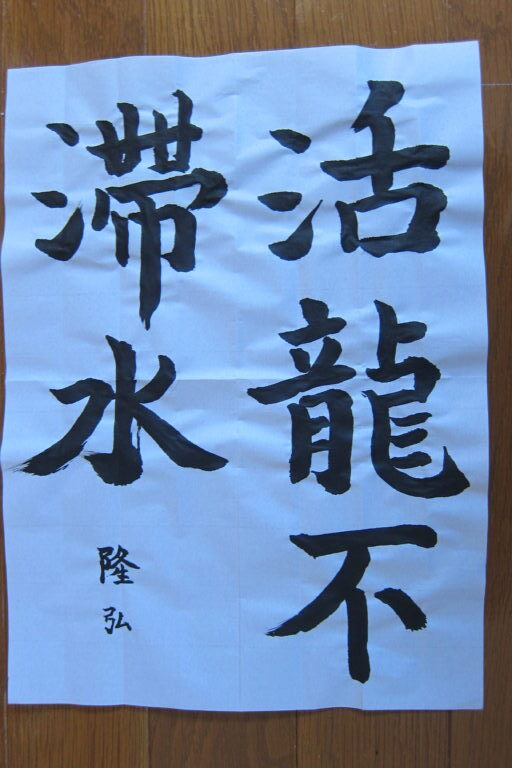 活龍不
滞水
隆弘